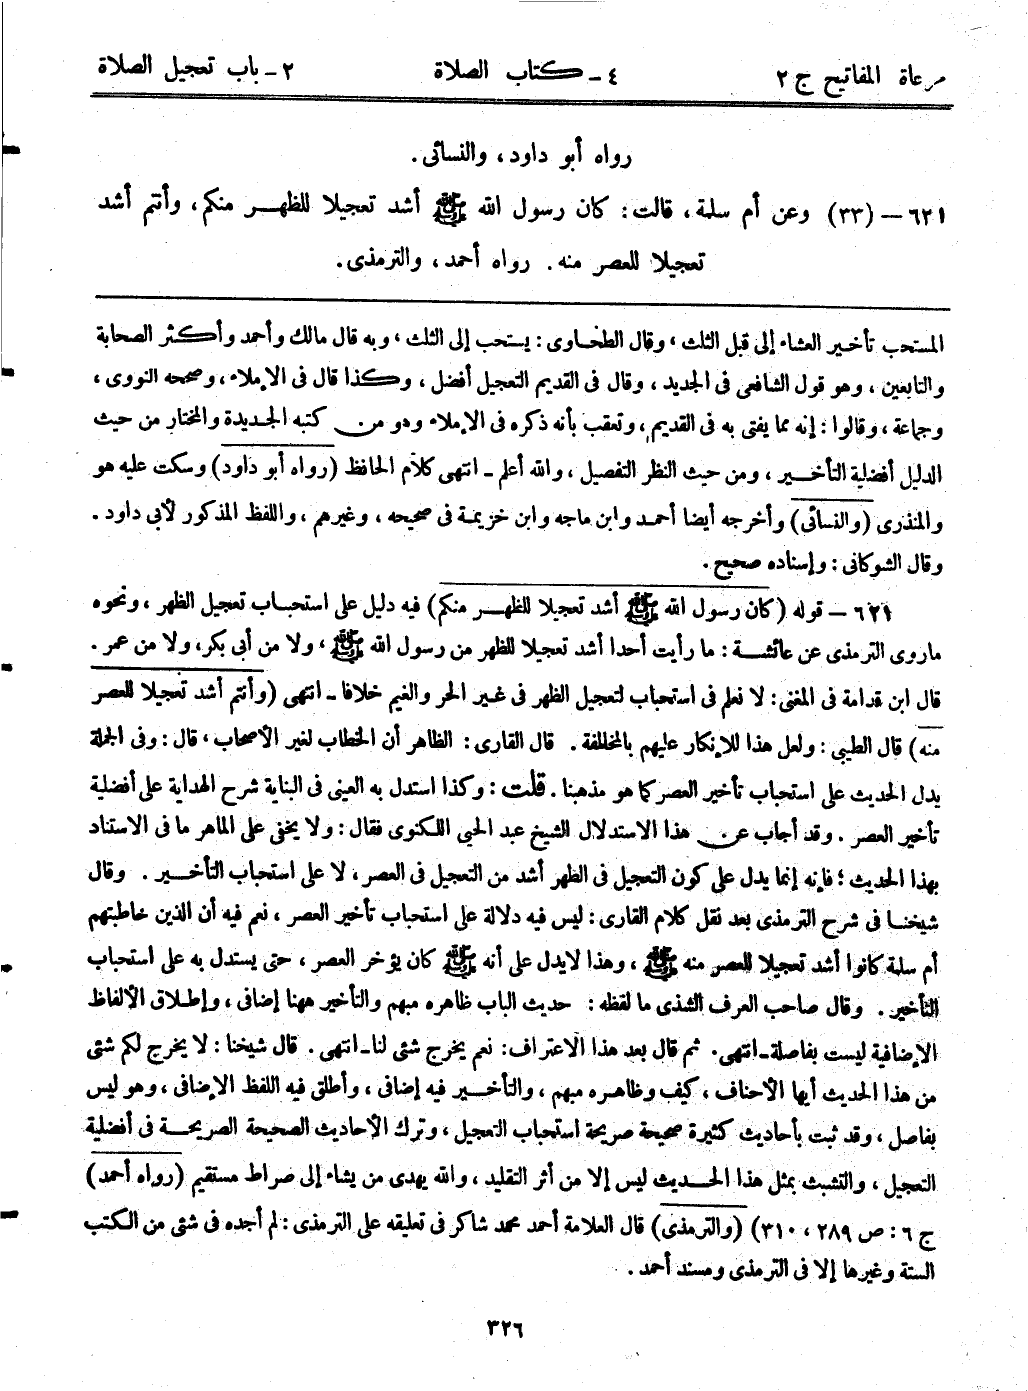 مرعاة المفاتيح ج ٢ ٤ - كتاب الصلاة ٢ - باب تعجيل الصلاة
رواه أبو داود، والنسائى.
٦٢١ - (٣٣) وعن أم سلمة، قالت: كان رسول الله ﷺ أشد تعجيلا للظهر منكم، وأنتم أشد
تعجيلا للعصر منه. رواه أحمد، والترمذى.
المستحب تأخير العشاء إلى قبل الثلث، وقال الطحاوى: يستحب إلى الثلث، وبه قال مالك وأحمد وأكثر الصحابة
والتابعين، وهو قول الشافعى فى الجديد، وقال فى القديم التعجيل أفضل، وكذا قال فى الإملاء، وصححه النووى،
وجماعة، وقالوا: إنه مما يفتى به فى القديم، وتعقب بأنه ذكره فى الإملاء وهو من كتبه الجديدة والمختار من حيث
الدليل أفضلية التأخير، ومن حيث النظر التفصيل، والله أعلم - انتهى كلام الحافظ (رواه أبو داود) وسكت عليه هو
والمنذرى (والنسائى) وأخرجه أيضا أحمد وابن ماجه وابن خزيمة فى صحيحه، وغيرهم، واللفظ المذكور لأبى داود.
وقال الشوكانى: وإسناده صحيح.
٦٢١ - قوله (كان رسول الله ﷺ أشد تعجيلا للظهر منكم) فيه دليل على استحباب تعجيل الظهر، ونحوه
ماروى الترمذى عن عائشة: ما رأيت أحدا أشد تعجيلا للظهر من رسول الله ﷺ، ولا من أبى بكر، ولا من عمر.
قال ابن قدامة فى المغنى: لا نعلم فى استحباب تعجيل الظهر فى غير الحر والغيم خلافا - انتهى (وأنتم أشد تعجيلا للعصر
منه) قال الطيبى: ولعل هذا للإنكار عليهم بالمخالفة. قال القارى: الظاهر أن الخطاب لغير الأصحاب، قال: وفى الجملة
يدل الحديث على استحباب تأخير العصر كما هو مذهبنا. قلت: وكذا استدل به العينى فى البناية شرح الهداية على أفضلية
تأخير العصر. وقد أجاب عن هذا الاستدلال الشيخ عبد الحى اللكنوى فقال: ولا يخفى على الماهر ما فى الاستناد
بهذا الحديث؛ فإنه إنما يدل على كون التعجيل فى الظهر أشد من التعجيل فى العصر، لا على استحباب التأخير. وقال
شيخنا فى شرح الترمذى بعد نقل كلام القارى: ليس فيه دلالة على استحباب تأخير العصر، نعم فيه أن الذين خاطبتهم
أم سلمة كانوا أشد تعجيلا للعصر منه ﷺ، وهذا لايدل على أنه ﷺ كان يؤخر العصر، حتى يستدل به على استحباب
التأخير. وقال صاحب العرف الشذى ما لفظه: حديث الباب ظاهره مبهم والتأخير ههنا إضافى، وإطلاق الألفاظ
الإضافية ليست بفاصلة - انتهى. ثم قال بعد هذا الاعتراف: نعم يخرج شئى لنا - انتهى. قال شيخنا: لا يخرج لكم شئى
من هذا الحديث أيها الأحناف، كيف وظاهره مبهم، والتأخير فيه إضافى، وأطلق فيه اللفظ الإضافى، وهو ليس
بفاصل، وقد ثبت بأحاديث كثيرة صحيحة صريحة استحباب التعجيل، وترك الأحاديث الصحيحة الصريحة فى أفضلية
التعجيل، والتشبث بمثل هذا الحديث ليس إلا من أثر التقليد، والله يهدى من يشاء إلى صراط مستقيم (رواه أحمد)
ج ٦: ص ٢٨٩، ٣١٠) (والترمذى) قال العلامة أحمد محمد شاكر فى تعليقه على الترمذى: لم أجده فى شئى من الكتب
الستة وغيرها إلا فى الترمذى ومسند أحمد.
٣٢٦